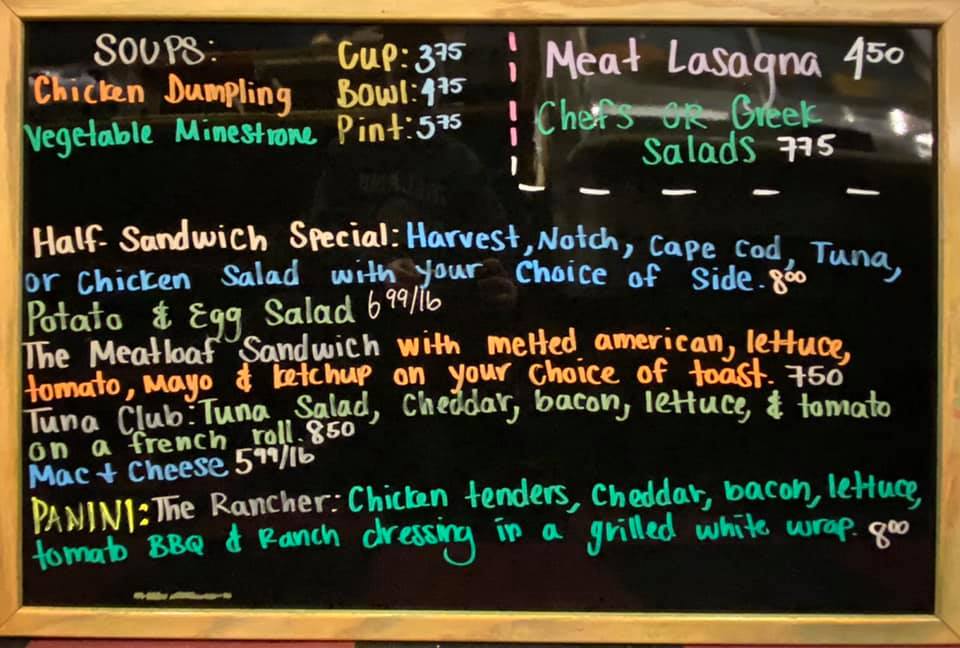 SOUPS:
Chicken Dumpling
Vegetable Minestrone
Cup: 375
Bowl: 475
Pint: 575
Meat Lasagna 450
Chefs OR Greek
Salads 775
Half-Sandwich Special: Harvest, Notch, Cape Cod, Tuna,
or Chicken Salad with your Choice of Side. 800
Potato & Egg Salad 699/lb
The Meatloaf Sandwich with melted american, lettuce,
tomato, Mayo & ketchup on your choice of toast. 750
Tuna Club: Tuna Salad, Cheddar, bacon, lettuce, & tomato
on a french roll. 850
Mac + Cheese 599/lb
PANINI: The Rancher: Chicken tenders, Cheddar, bacon, lettuce,
tomato BBQ & Ranch dressing in a grilled white wrap. 800